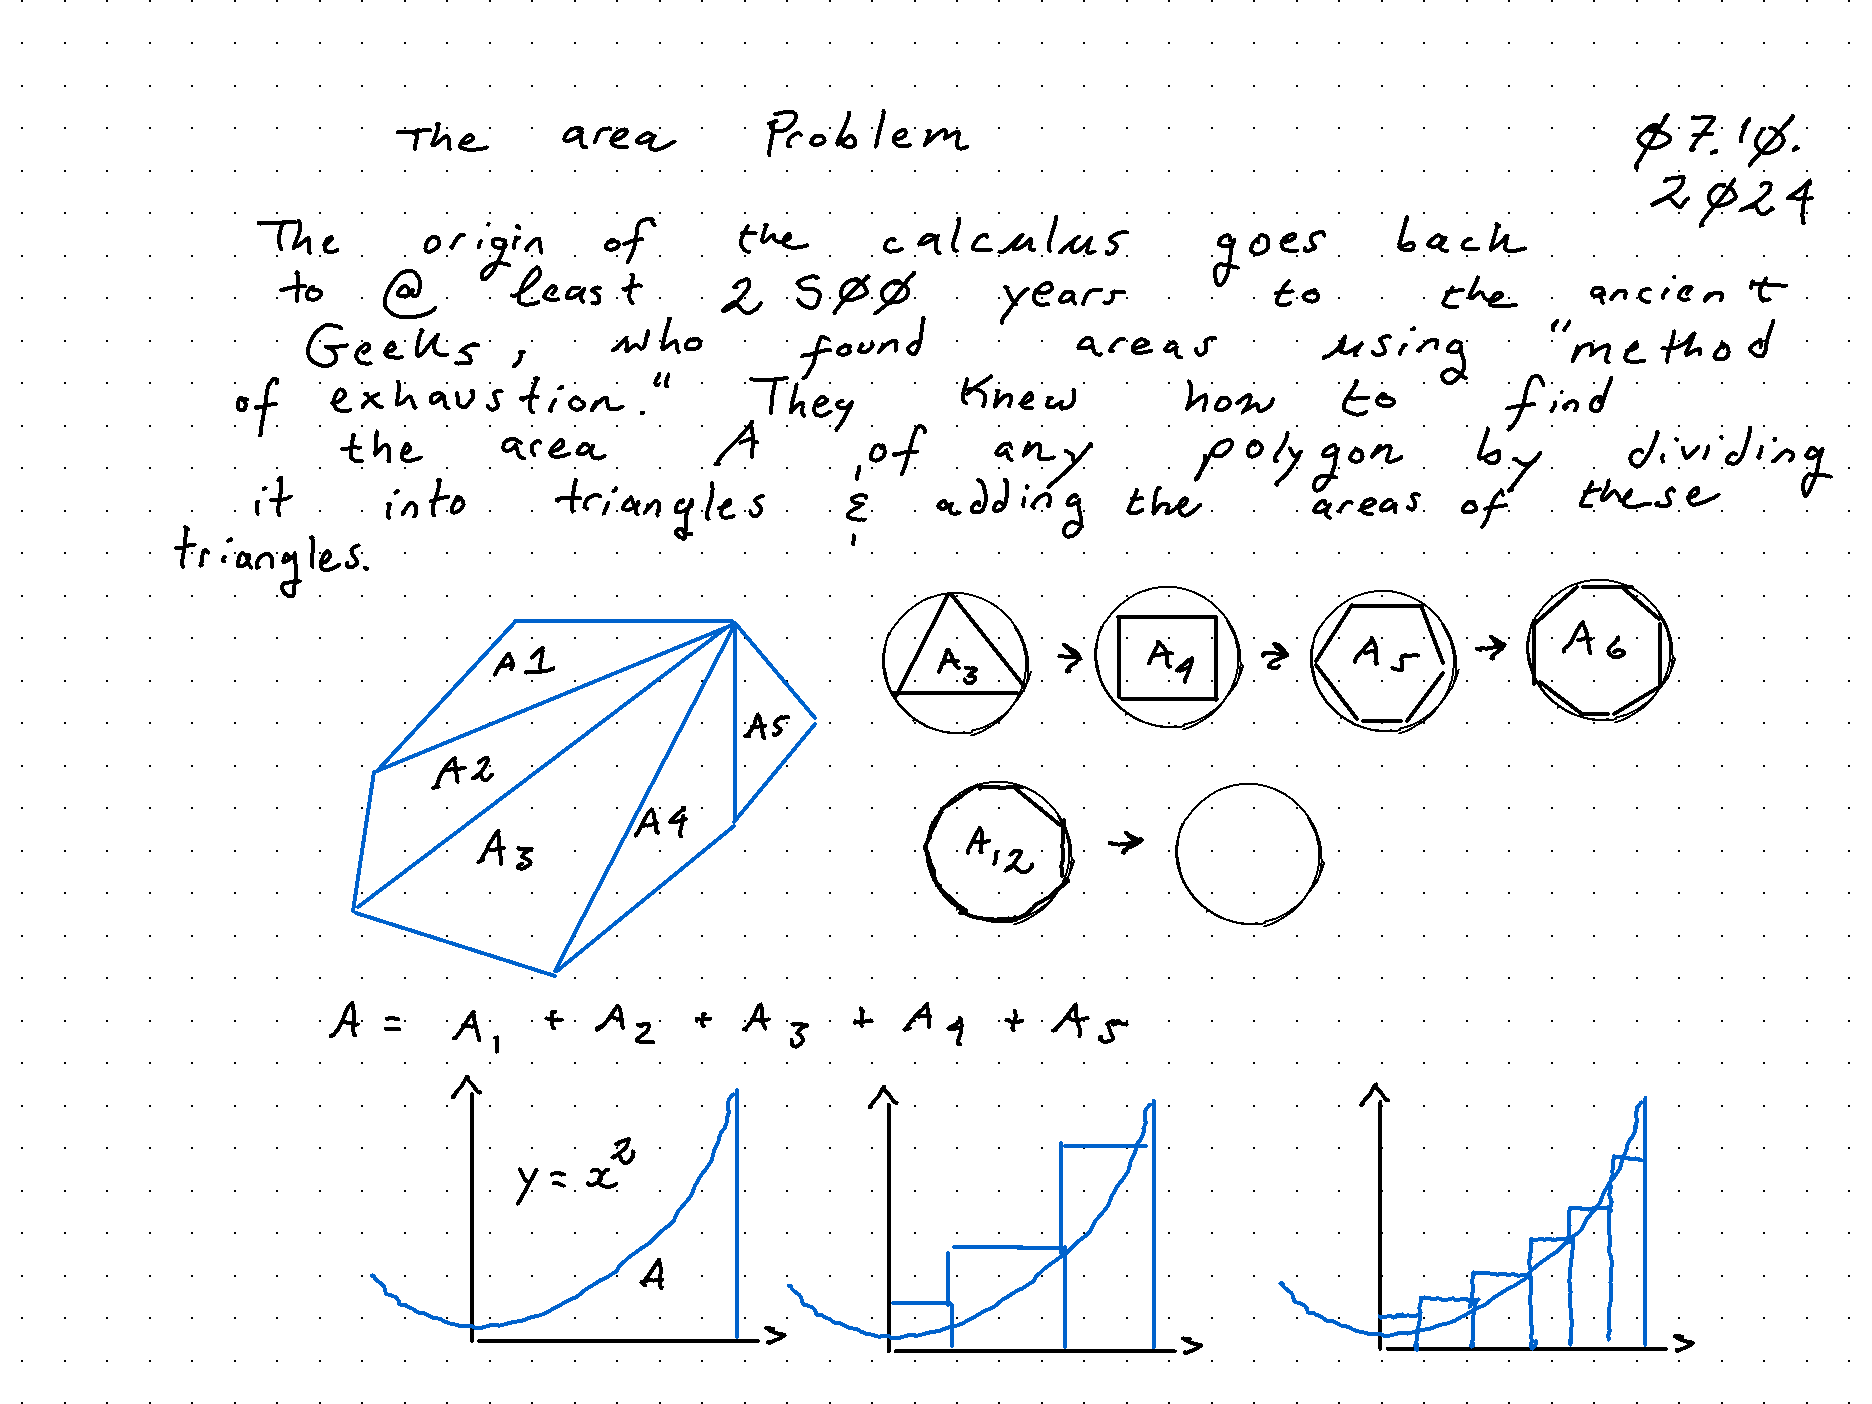 The area Problem
Ø7.1Ø.
2Ø24
The origin of the calculus goes back
to @ least 25ØØ years to the ancient
Geeks, who found areas using "method
of exhaustion." They knew how to find
the area A of any polygon by dividing
it into triangles & adding the areas of these
triangles.
A1
A2
A3
A4
A5
A₃ → A₄ → A₅ → A₆
A₁₂ →
A = A₁ + A₂ + A₃ + A₄ + A₅
y = x²
A